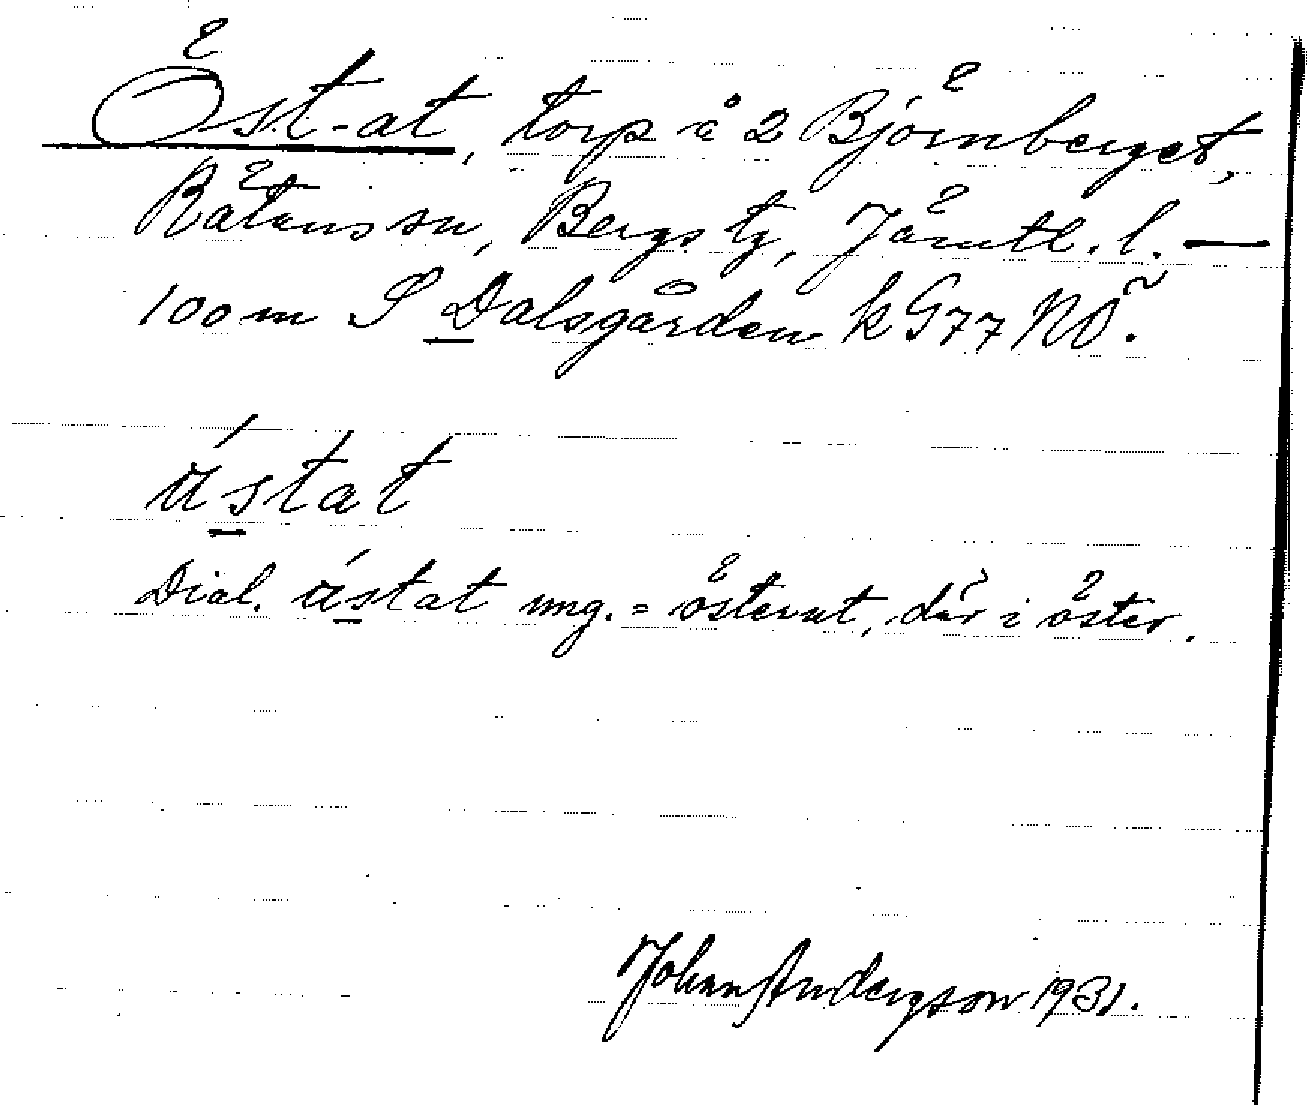 Öst-at, torp å 2 Björnberget,
Rätans sn, Bergs tg, Jämtl. l. —
100 m S Dalsgården k G77 NÖ.
ástat
Dial. ástat ung. = österut, där i öster.
Johan Andersson 1931.